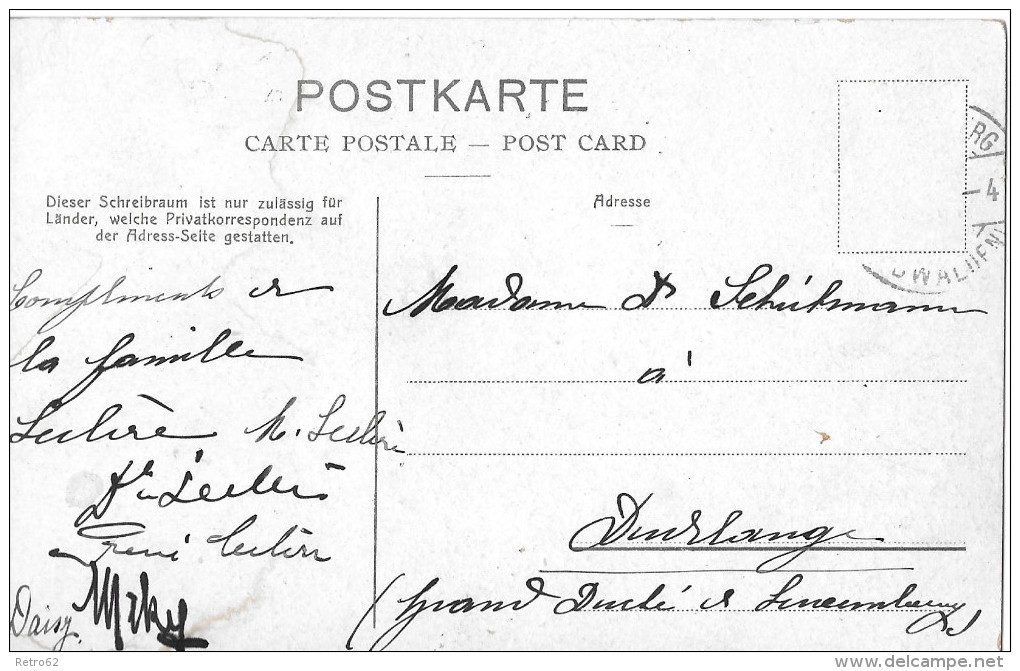 POSTKARTE
CARTE POSTALE — POST CARD
Dieser Schreibraum ist nur zulässig für
Länder, welche Privatkorrespondenz auf
der Adress-Seite gestatten.
Compliments de
la famille
Leclère M. Leclère
Leclère
Leclère
Daisy Miky
Adresse
Madame Dr Schütmann
à
Durlange
(Grand Duché de Luxembourg)
RG
4
DWALDEN
Retro62
delcampe.net